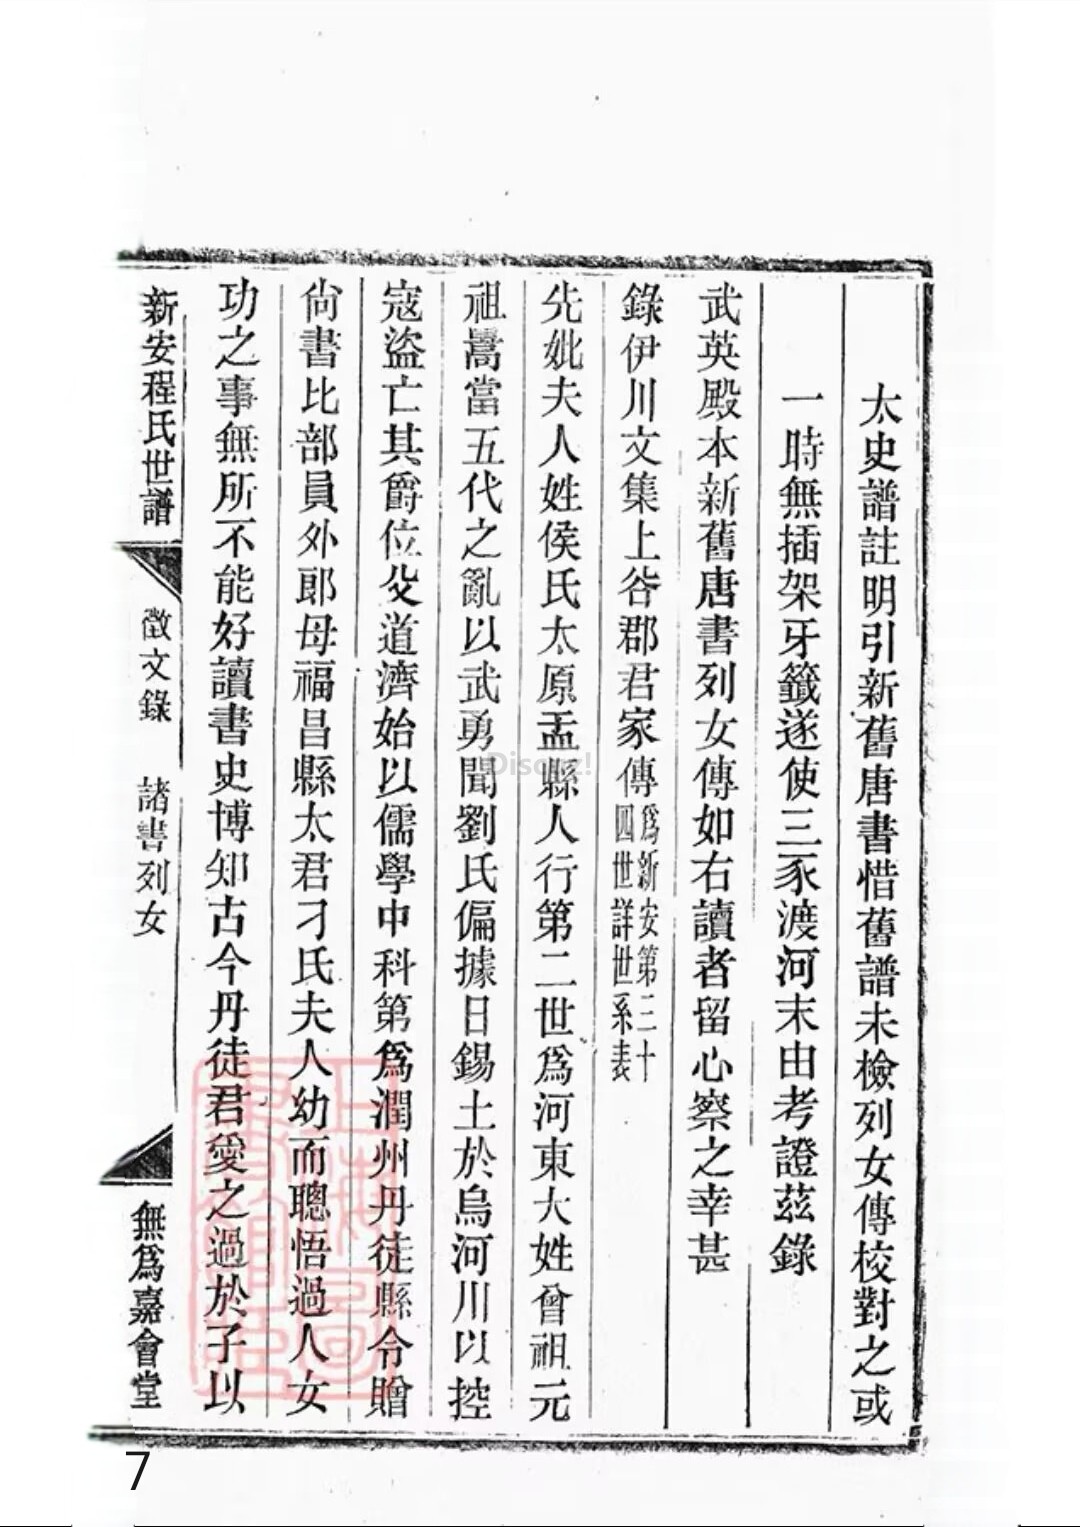 太史譜註明引新舊唐書惜舊譜未檢列女傳校對之或
一時無插架牙籤遂使三豕渡河末由考證茲錄
武英殿本新舊唐書列女傳如右讀者留心察之幸甚
錄伊川文集上谷郡君家傳為新安第三十四世詳世系表
先妣夫人姓侯氏太原盂縣人行第二世為河東大姓曾祖元
祖暠當五代之亂以武勇聞劉氏偏據日錫土於烏河川以控
寇盜亡其爵位父道濟始以儒學中科第為潤州丹徒縣令贈
尚書比部員外郎母福昌縣太君刁氏夫人幼而聰悟過人女
功之事無所不能好讀書史博知古今丹徒君愛之過於子以
新安程氏世譜 徵文錄 諸書列女 無為嘉會堂
上海圖書館藏
Discuz!
7